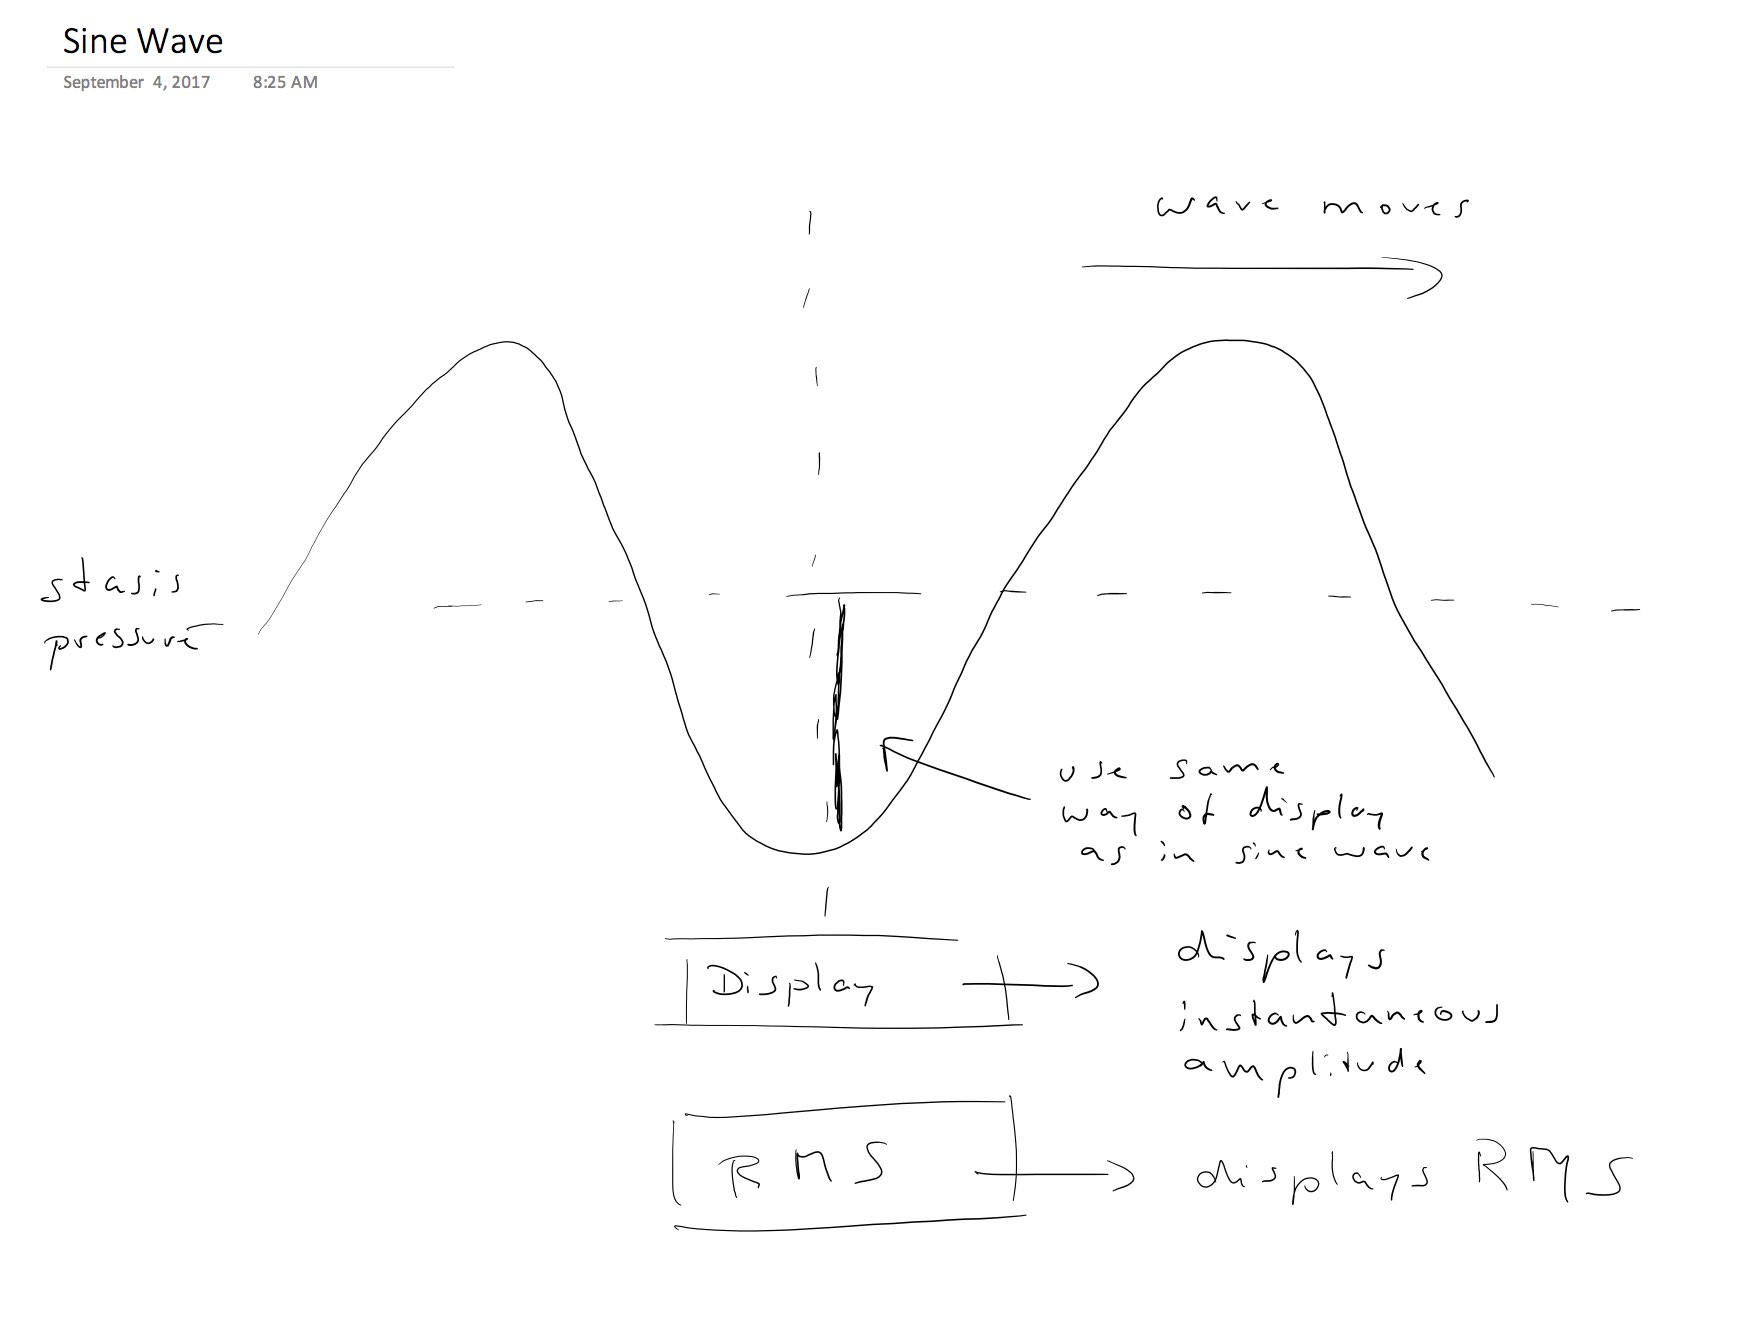 Sine Wave
September 4, 2017 8:25 AM
wave moves
stasis
pressure
use same
way of display
as in sine wave
Display
displays
instantaneous
amplitude
RMS
displays RMS